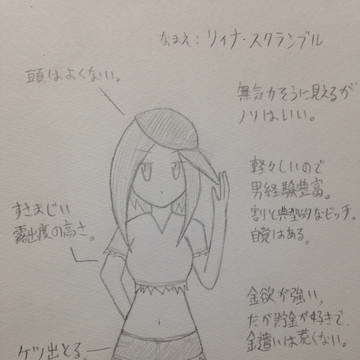 なまえ：リィナ・スクランブル
頭はよくない。
無気力そうに見えるが
ノリはいい。
軽々しいので
男経験豊富。
割りと典型的なビッチ。
自覚はある。
すさまじい
露出度の高さ。
金欲が強い。
だが貯金が好きで、
金遣いは荒くない。
ケツ出とる。